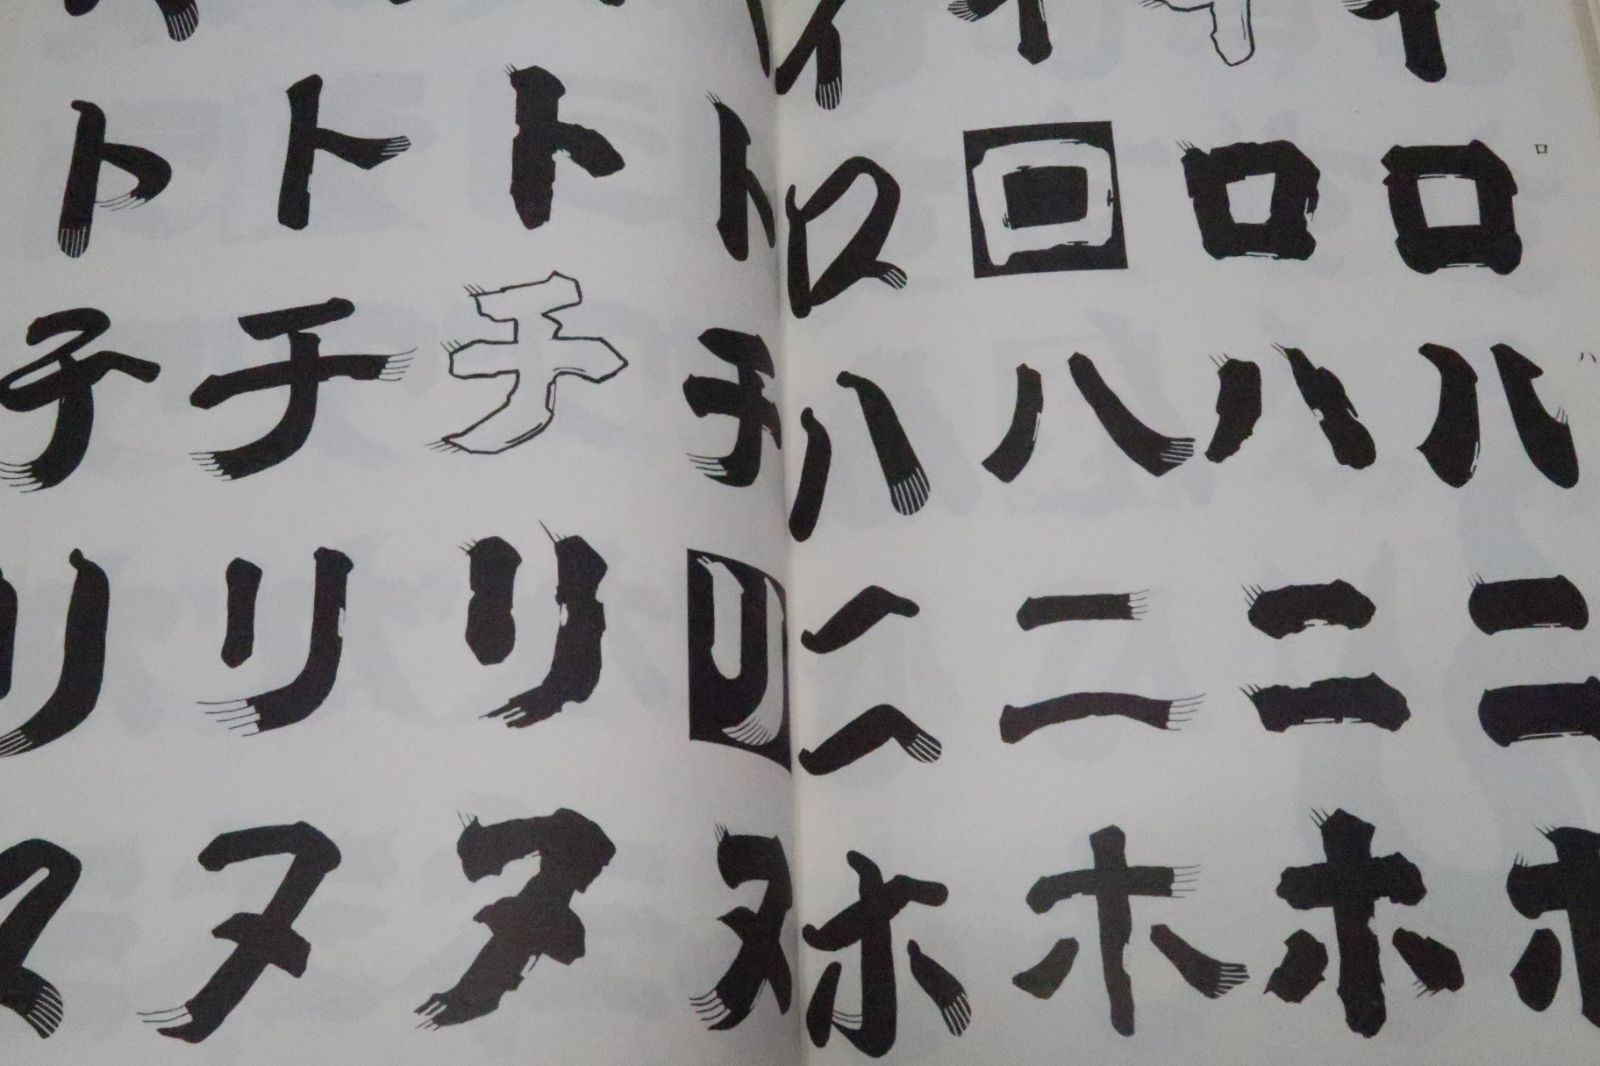 ト ト ト ト
チ チ チ チ
リ リ リ リ
ヌ ヌ ヌ ヌ
イ イ イ イ
ロ ロ ロ ロ ロ
ハ ハ ハ ハ ハ
ニ ニ ニ ニ
ホ ホ ホ ホ